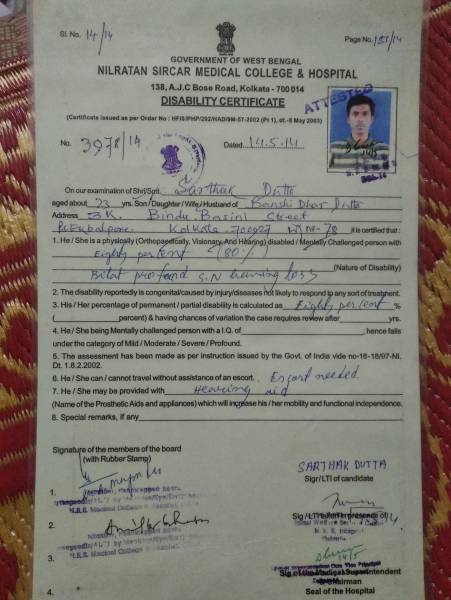 Sl. No. 14/14
Page No. 
GOVERNMENT OF WEST BENGAL
NILRATAN SIRCAR MEDICAL COLLEGE & HOSPITAL
138, A.J.C Bose Road, Kolkata - 700 014
DISABILITY CERTIFICATE
ATTESTED
(Certificate issued as per Order No : HF/S/PHP/292/HAD/9M-57-2002 (Pt 1), dt.-8 May 2003)
No. 3978/14 Dated 14.5.14
On our examination of Shri/Smt. Sarthak Dutta
aged about 23 yrs. Son / Daughter / Wife / Husband of Banshi Dhar Dutta
Address 3K. Bindu Basini Street
Kolkata it is certified that :
1. He / She is a physically (Orthopaedically, Visionary And Hearing) disabled / Mentally Challenged person with
Eighty percent (80%)
Bilat profound S.N hearing loss (Nature of Disability)
2. The disability reportedly is congenital/caused by injury/diseases not likely to respond to any sort of treatment.
3. His / Her percentage of permanent / partial disability is calculated as Eighty percent %
( percent) & having chances of variation the case requires review after yrs.
4. He / She being Mentally challenged person with a I.Q. of , hence falls
under the category of Mild / Moderate / Severe / Profound.
5. The assessment has been made as per instruction issued by the Govt. of India vide no-16-18/97-NI.
Dt. 1.8.2.2002.
6. He / She can / cannot travel without assistance of an escort. Escort needed
7. He / She may be provided with Hearing aid
(Name of the Prosthetic Aids and appliances) which will increase his / her mobility and functional independence.
8. Special remarks, if any
Signature of the members of the board
(with Rubber Stamp)
SARTHAK DUTTA
Sign/LTI of candidate
1.
2.
3.
4.
Sig of the Medical Superintendent
& Chairman
Seal of the Hospital